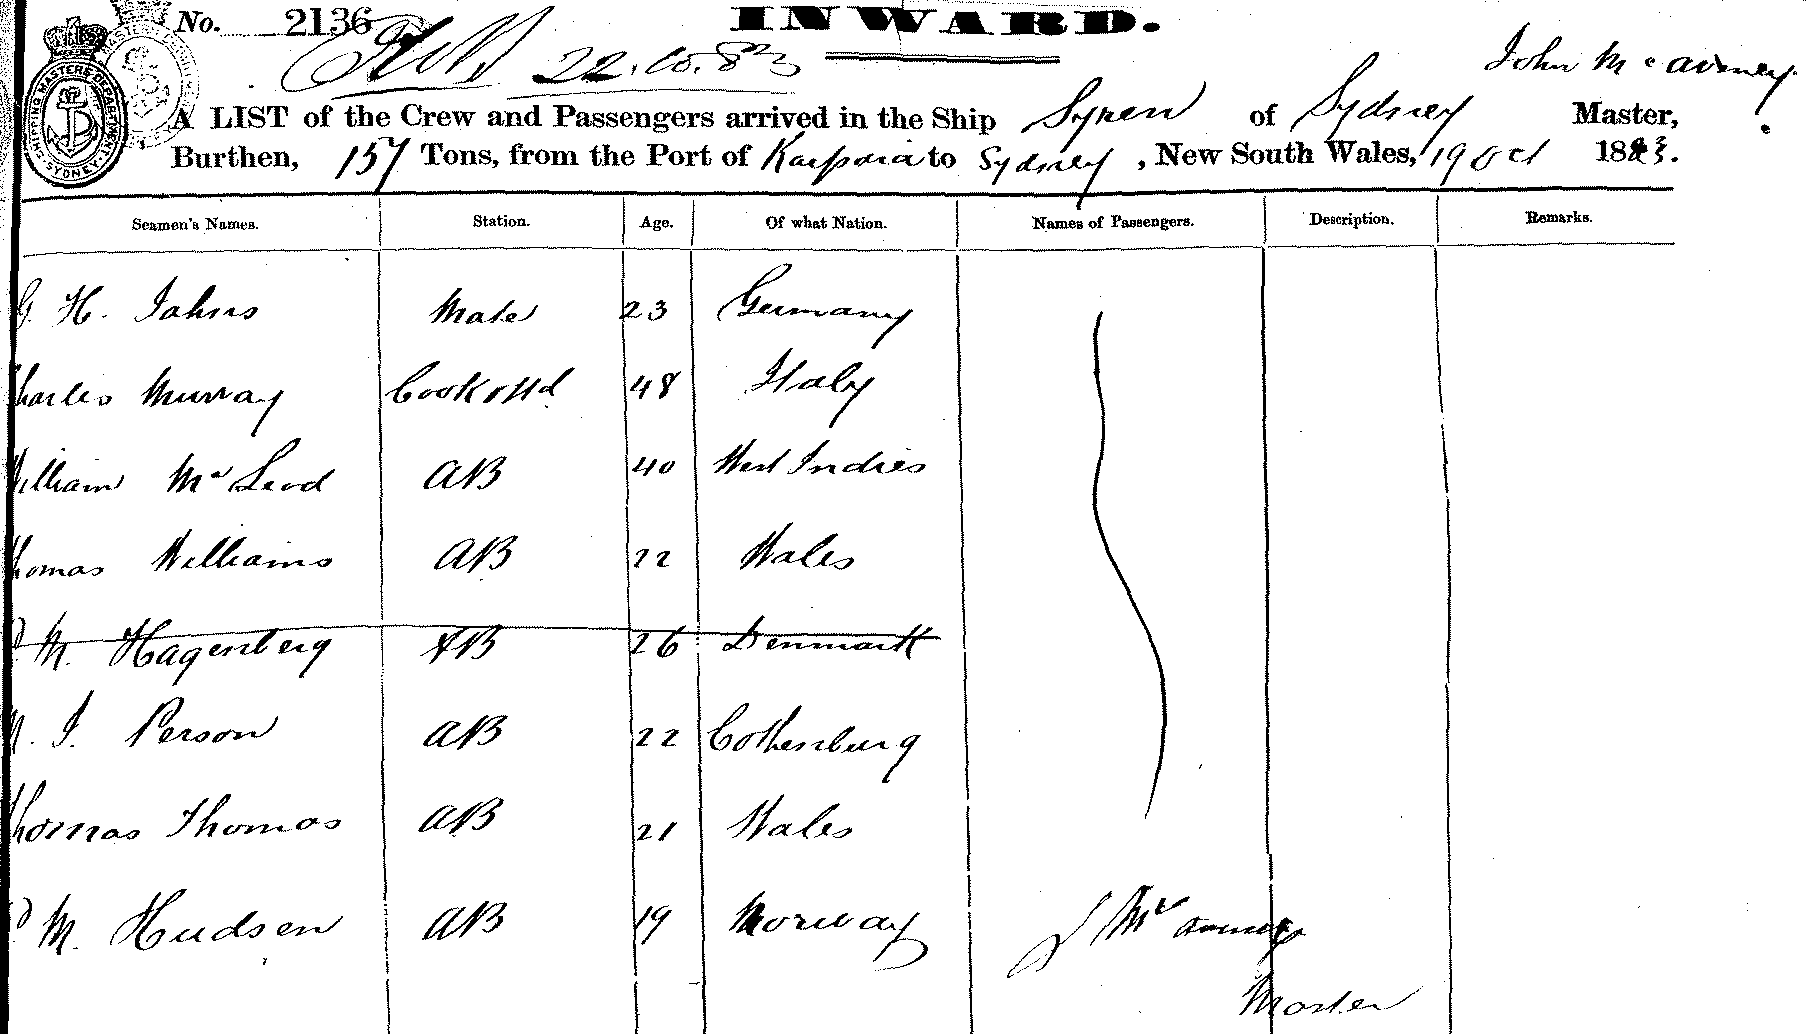 No. 2136
INWARD.
22.10.83
John McAviney
A LIST of the Crew and Passengers arrived in the Ship Syren of Sydney Master,
Burthen, 157 Tons, from the Port of Kaipara to Sydney, New South Wales, 19 Oct 1883.
Seamen's Names. Station. Age. Of what Nation. Names of Passengers. Description. Remarks.
G. H. Jahns Mate 23 Germany
Charles Murray Cook & Std 48 Italy
William McLeod AB 40 West Indies
Thomas Williams AB 22 Wales
M. Hagenberg AB 26 Denmark
I. Person AB 22 Gothenburg
Thomas Thomas AB 21 Wales
M. Hudsen AB 19 Norway
J McAviney
Master
SHIPPING MASTERS DEPARTMENT SYDNEY